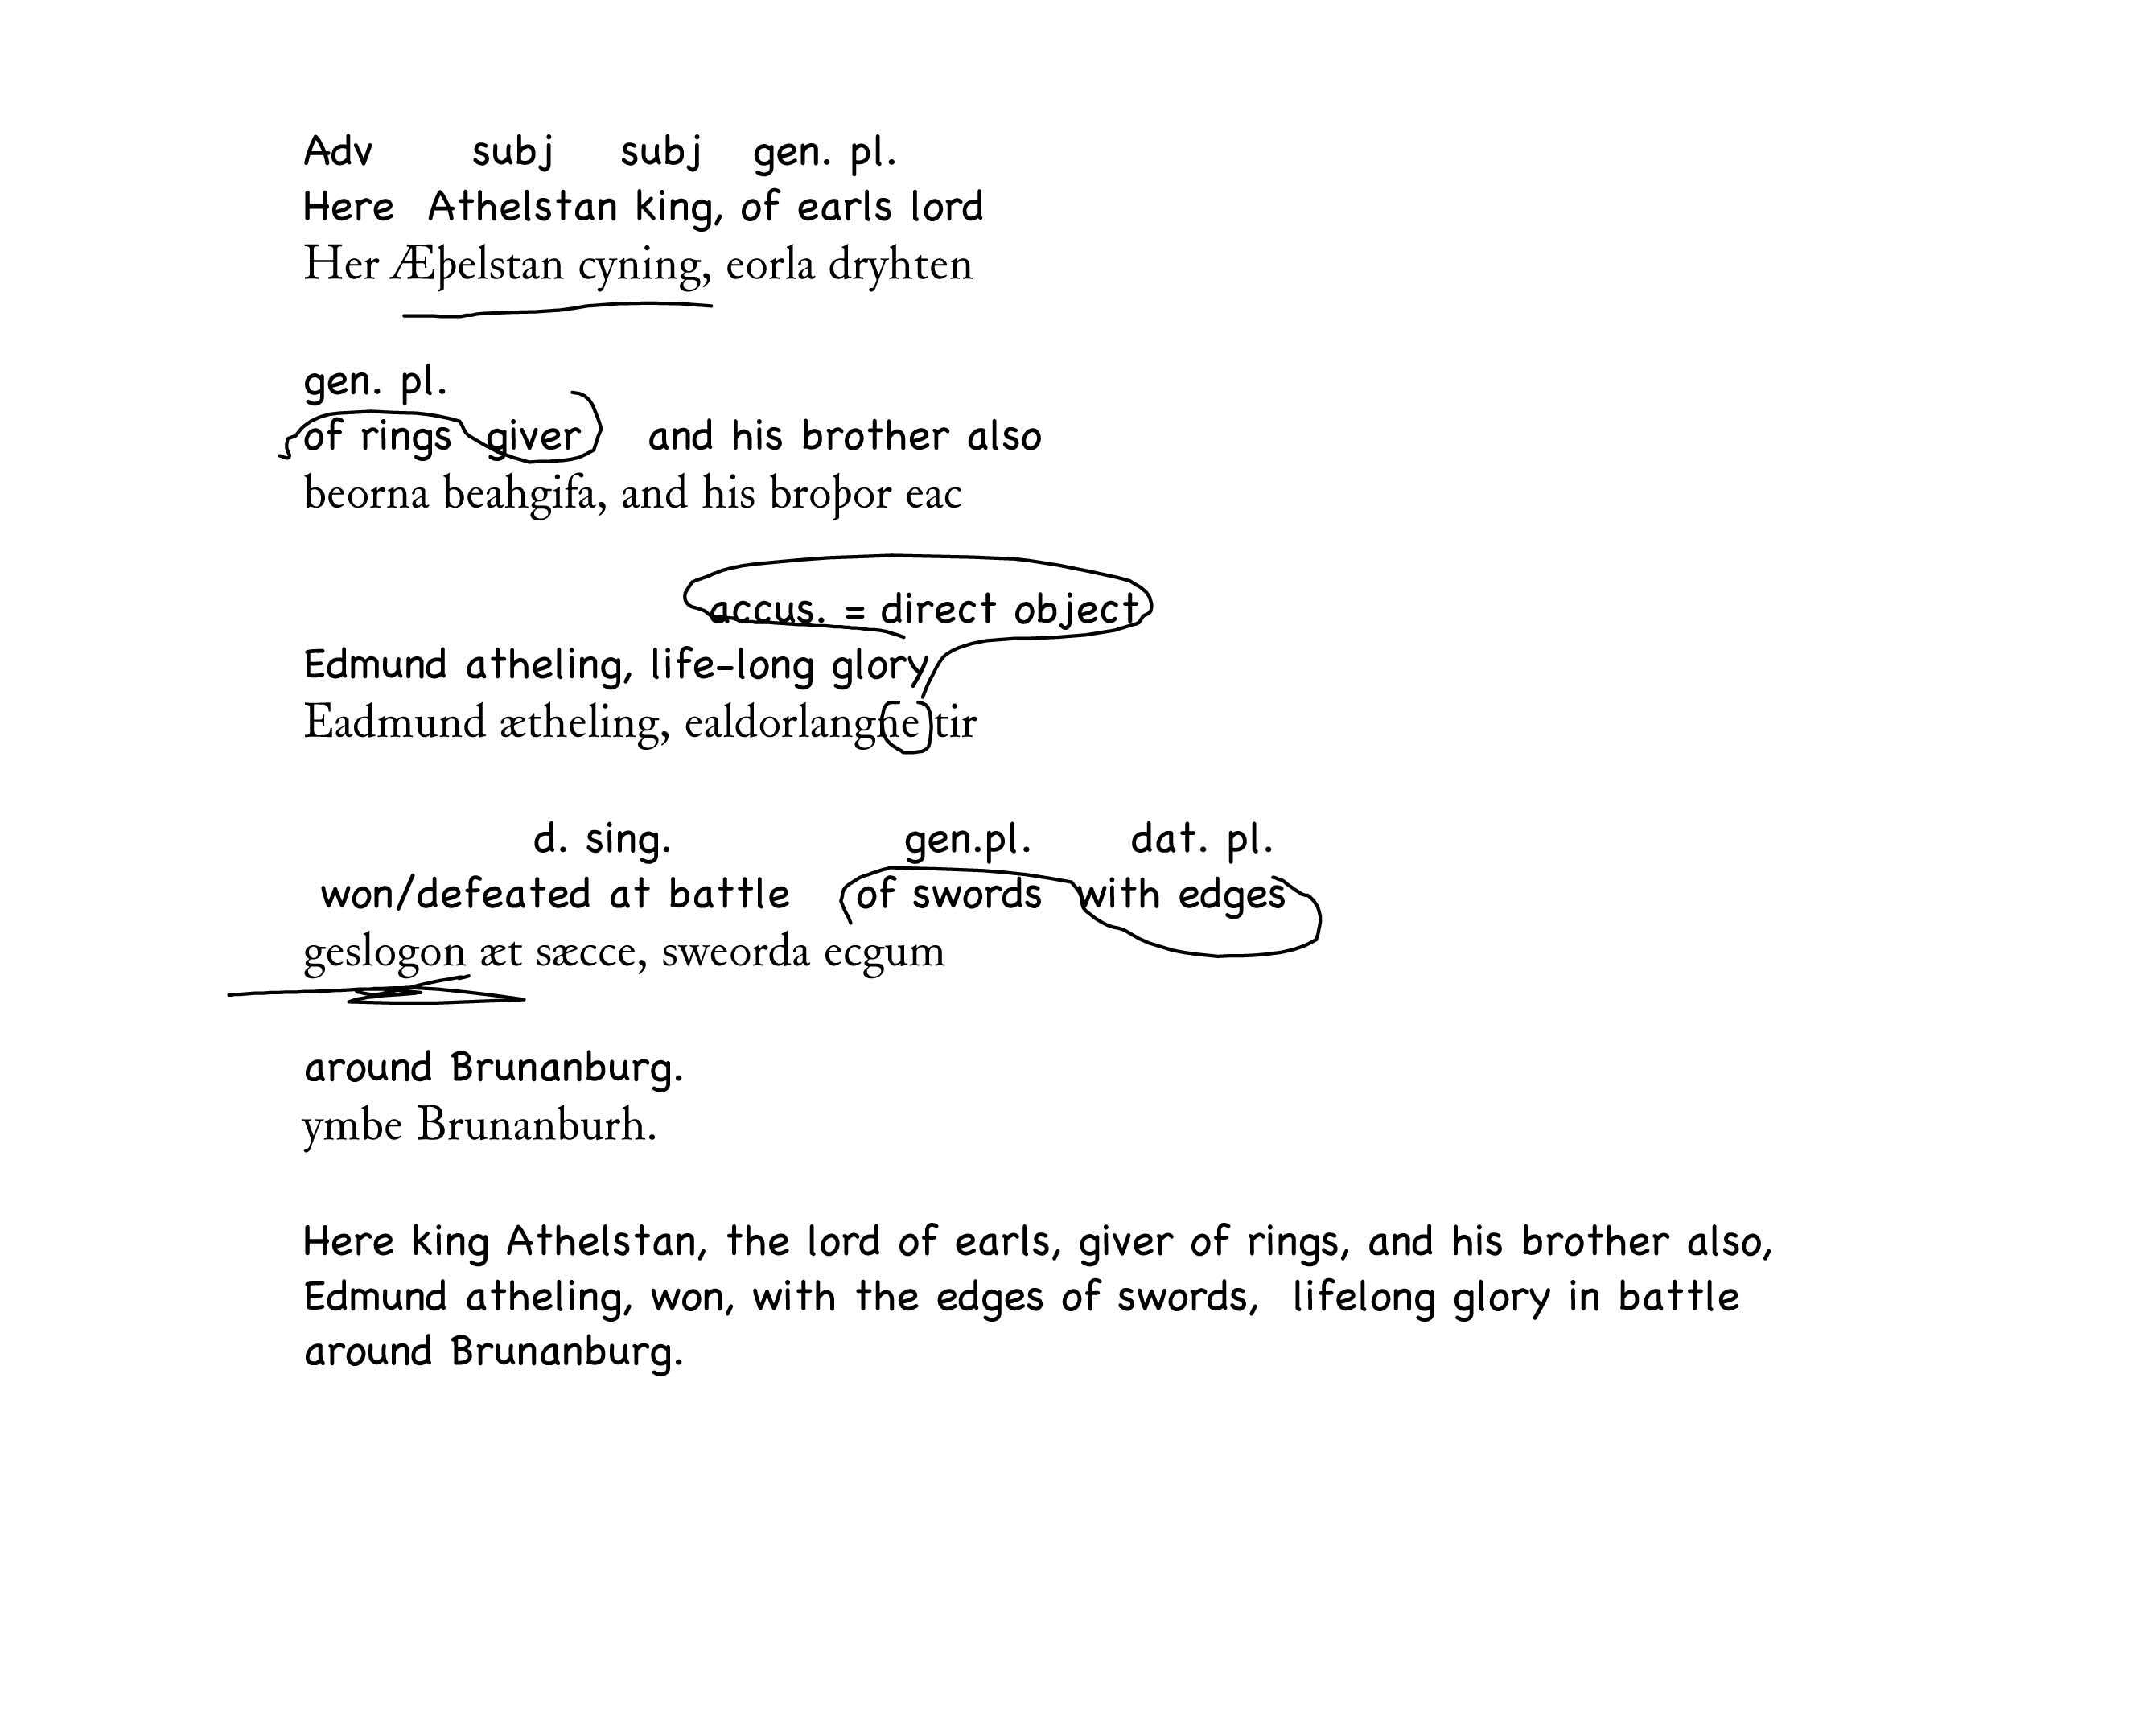 Adv subj subj gen. pl.
Here Athelstan king, of earls lord
Her Æþelstan cyning, eorla dryhten
gen. pl.
of rings giver and his brother also
beorna beahgifa, and his broþor eac
accus. = direct object
Edmund atheling, life-long glory
Eadmund ætheling, ealdorlangne tir
d. sing. gen.pl. dat. pl.
won/defeated at battle of swords with edges
geslogon æt sæcce, sweorda ecgum
around Brunanburg.
ymbe Brunanburh.
Here king Athelstan, the lord of earls, giver of rings, and his brother also,
Edmund atheling, won, with the edges of swords, lifelong glory in battle
around Brunanburg.